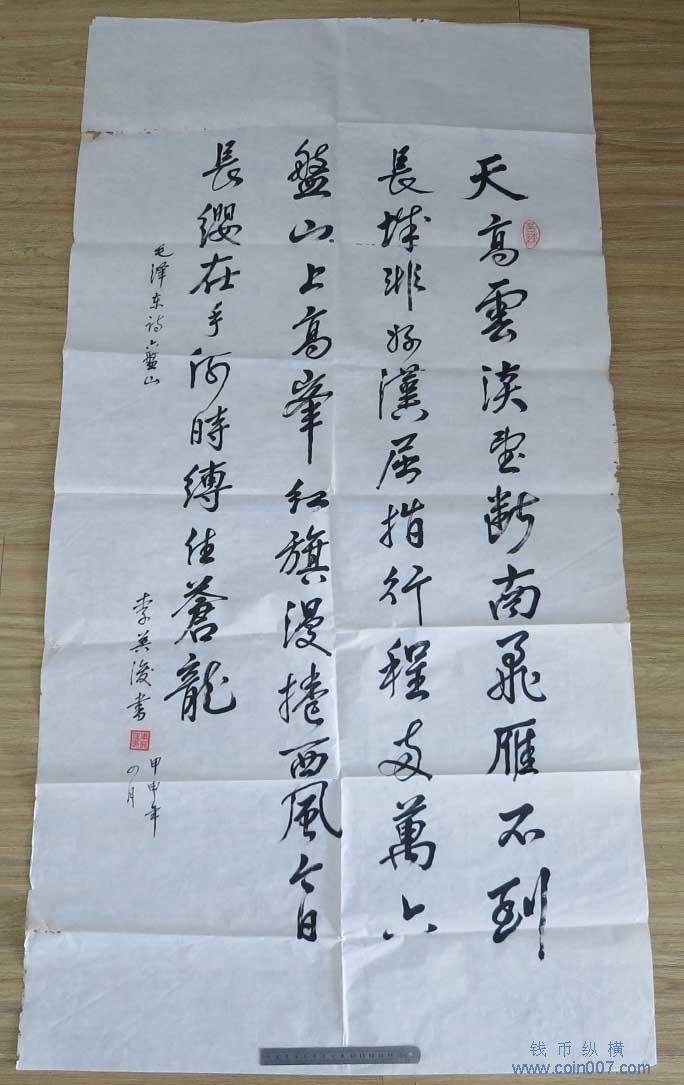 天高雲淡望斷南飛雁不到
長城非好漢屈指行程二萬六
盤山上高峯红旗漫捲西風今日
長缨在手何時縛住蒼龍
毛泽东诗六盤山
李英俊書
甲申年
四月
钱币纵横
www.coin007.com